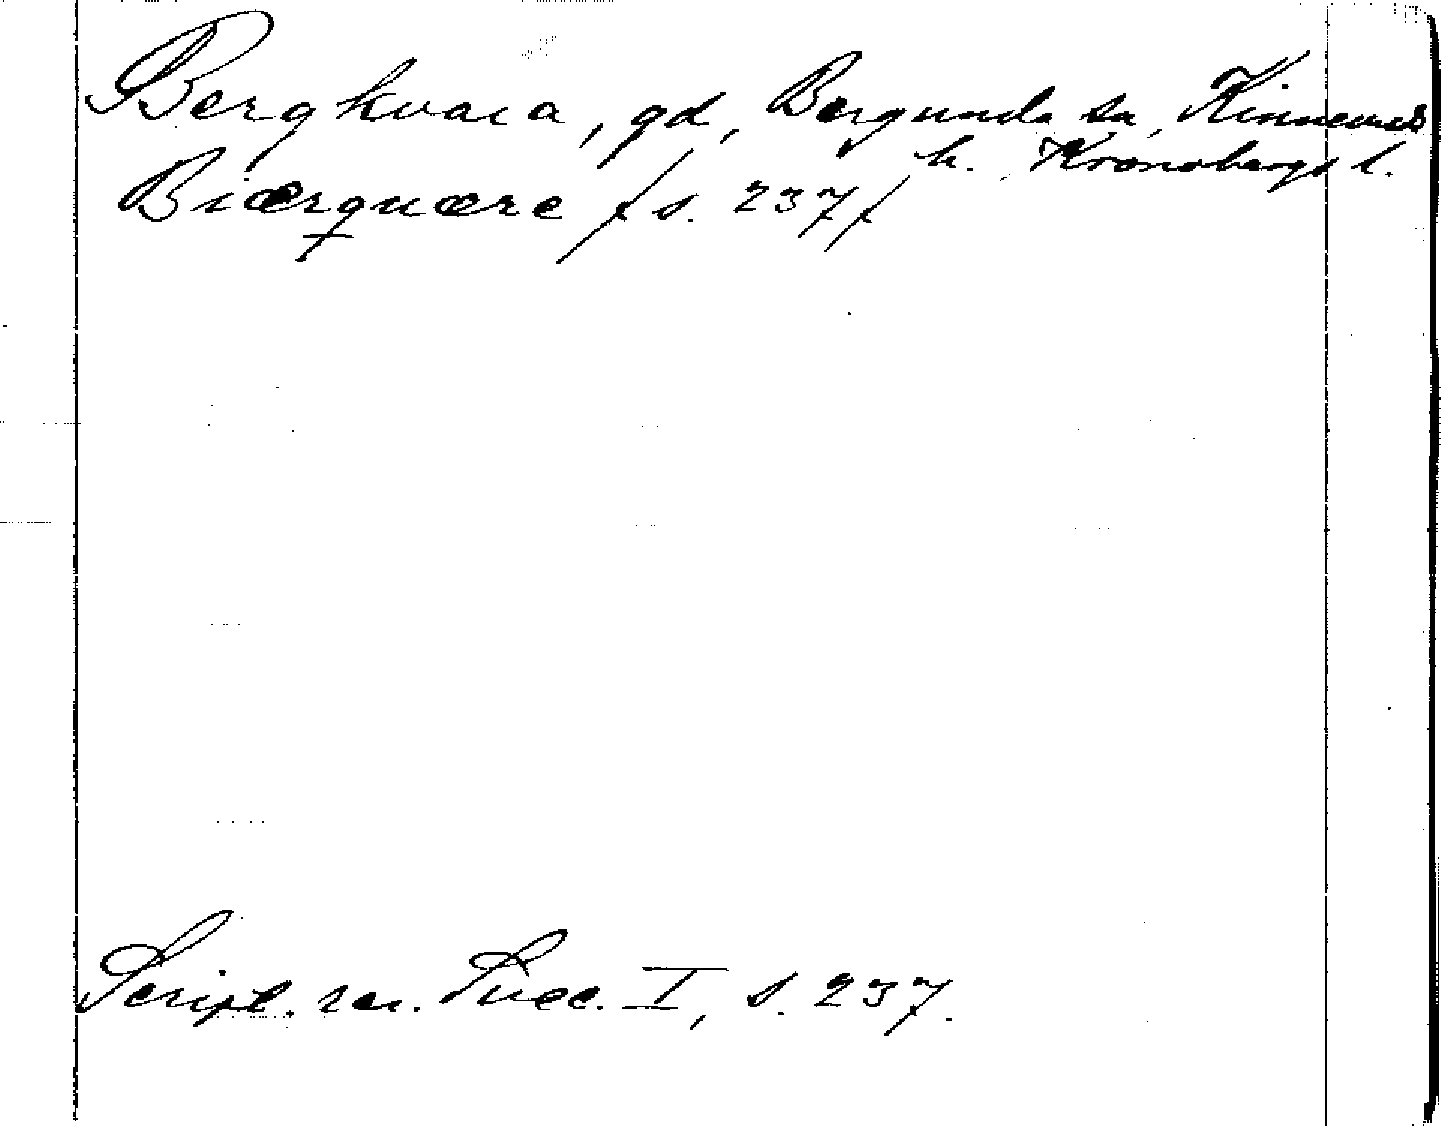 Bergkvara, gd, Bergunda sn, Kinnevads
h. Kronobergs l.
Biærquære / s. 237 /
Script. rer. Suec. I, s. 237.